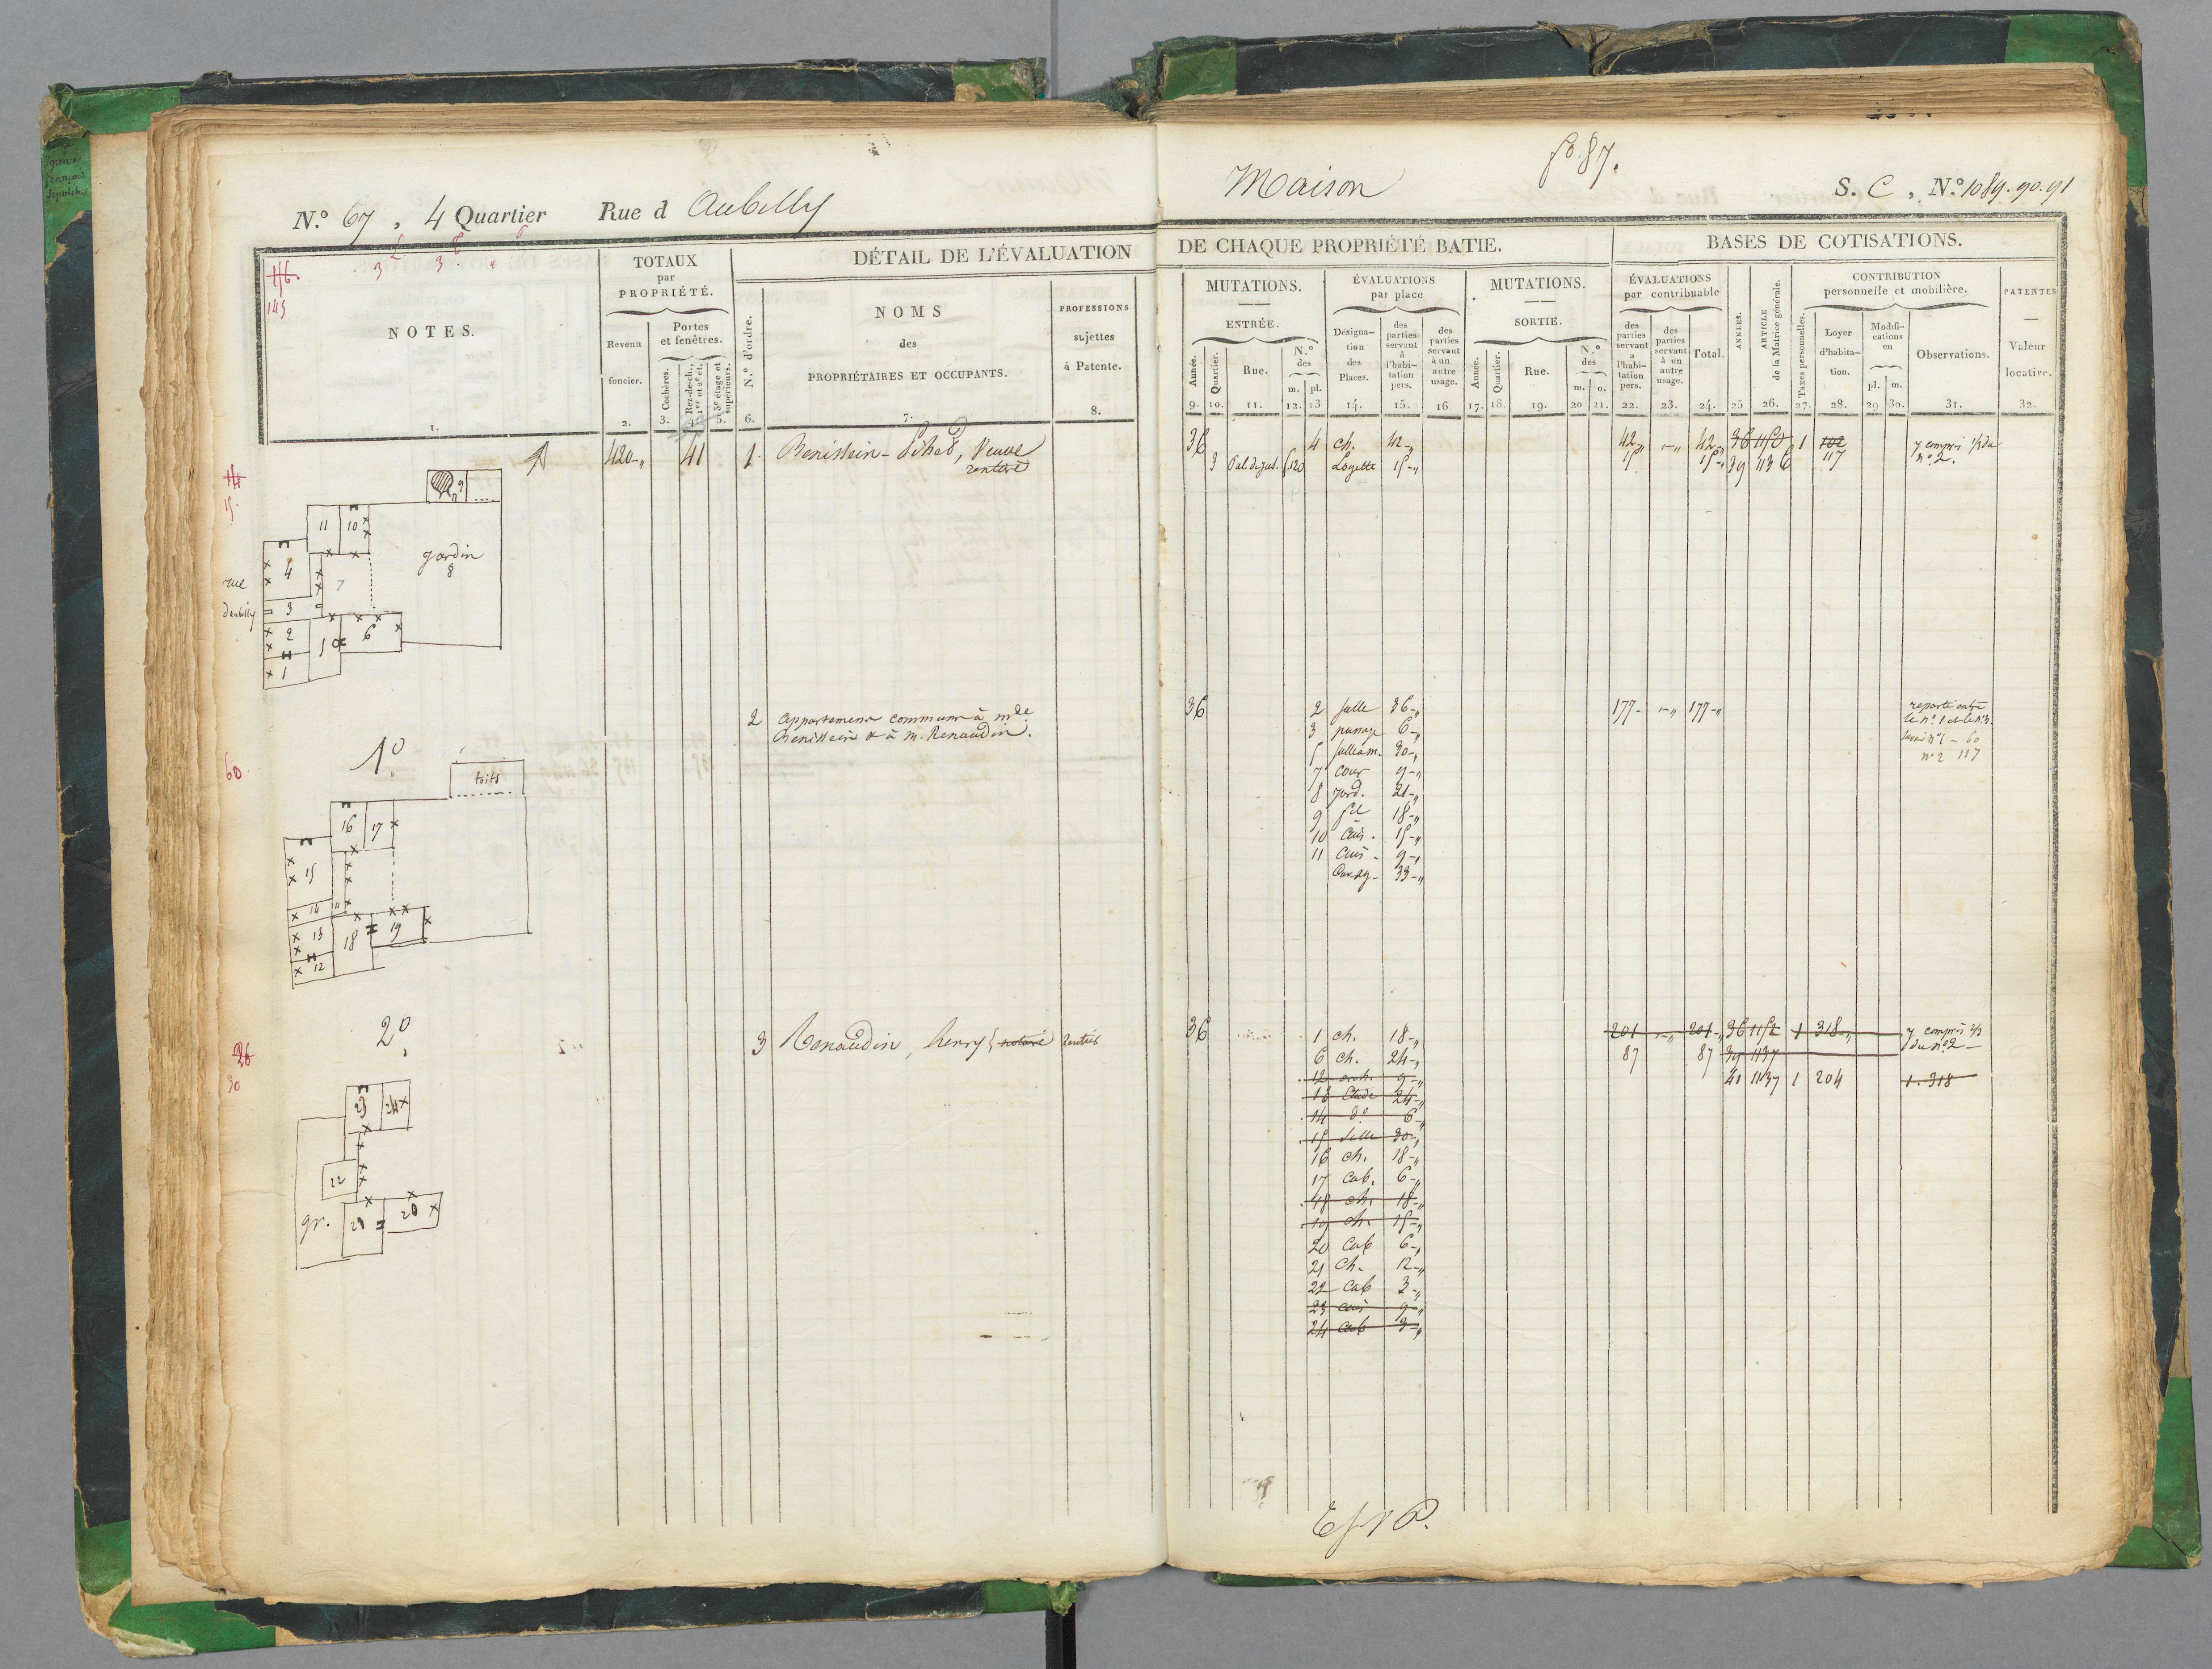 N.º 67, 4 Quartier Rue d Aubilly
Maison
fº 87.
S. C, N.º 1089.90.91
146.
145
NOTES.
1.
TOTAUX
par
PROPRIÉTÉ.
Revenu
foncier.
2.
Portes
et fenêtres.
3. Cochères.
Rez-de-ch.,
1er et 2e ét.
4.
3e étage et
supérieurs.
5.
DÉTAIL DE L'ÉVALUATION
DE CHAQUE PROPRIÉTÉ BATIE.
N.º d'ordre.
6.
NOMS
des
PROPRIÉTAIRES ET OCCUPANTS.
7.
PROFESSIONS
sujettes
à Patente.
8.
MUTATIONS.
ENTRÉE.
Année.
9.
Quartier.
10.
Rue.
11.
N.º
des
m. pl.
12. 13
ÉVALUATIONS
par place
Désigna-
tion
des
Places.
14.
des
parties
servant
à
l'habi-
tation
pers.
15.
des
parties
servant
à un
autre
usage.
16
MUTATIONS.
SORTIE.
Année.
17.
Quartier.
18.
Rue.
19.
N.º
des
m. o.
20 21.
BASES DE COTISATIONS.
ÉVALUATIONS
par contribuable
des
parties
servant
a
l'habi-
tation
pers.
22.
des
parties
servant
à un
autre
usage.
23.
Total.
24.
ANNÉES.
25
ARTICLE
de la Matrice générale.
26.
CONTRIBUTION
personnelle et mobilière.
Taxes personnelles.
27.
Loyer
d'habita-
tion.
28.
Modifi-
cations
en
pl. m.
29 30.
Observations.
31.
PATENTES
Valeur
locative.
32.
420-" 41 1 Benistein- , Veuve
rentière
36 4 ch. 42-" 42-" -" 42-" 36 1150 1 102 y compris 1/3 du
3 Pal. de just. 120 Logette 15-" 15 15-" 39 1136 117 nº 2.
14
15.
9
11 10
4 7 jardin
8
rue
d'aubilly
3
2 6
1
2 appartemens communs à mde
Benistein & à M. Renaudin.
36 2 salle 36-" 177- -" 177-" reporté entre
le nº 1 et le nº 3.
3 passage 6-"
5 salle à m. 30-"
nº 2 117
7 cour 9-"
8 jard. 21-"
9 18-"
10 cuis. 15-"
11 cuis. 9-"
33-"
60
1º
toits
16 17
15
14
13 18 19
12
3 Renaudin, henry, notaire rentier
36 1 ch. 18-" 201 -" 201- 36 1152 1 318-" y compris 2/3
6 ch. 24-" 87 87 39 1137 du nº 2-
12 9-" 41 1137 1 204 1. 318
13 24-"
14 dº 6-"
15 salle 30-"
16 ch. 18-"
17 cab. 6-"
18 ch. 18-"
19 ch. 15-"
20 cab 6-"
21 ch. 12-"
22 cab 3-"
23 cuis 9-"
24 cab 3-"
2º
26
30
23 24
22
gr. 21 20